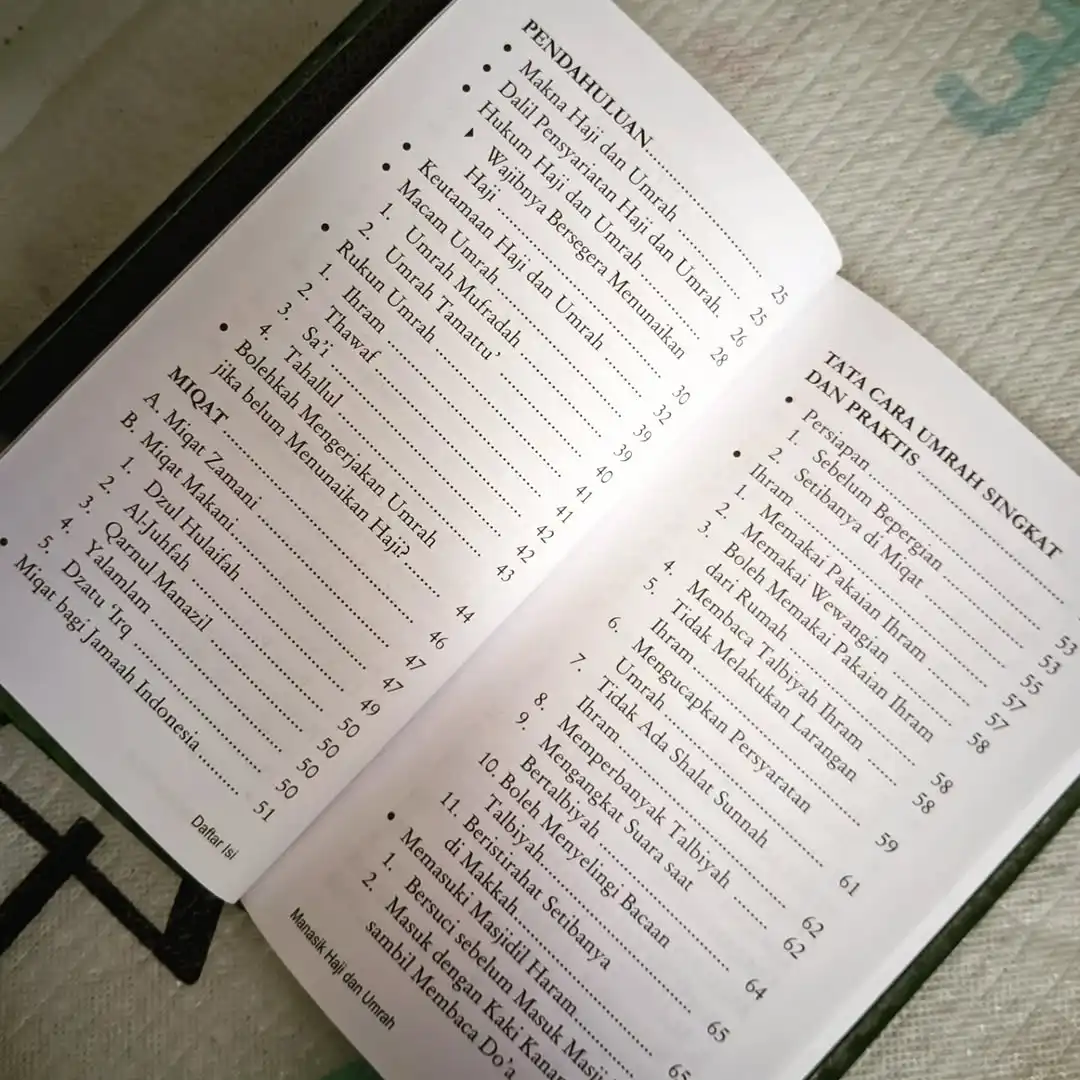 PENDAHULUAN.......... 25
• Makna Haji dan Umrah .......... 25
• Dalil Pensyariatan Haji dan Umrah. 26
• Hukum Haji dan Umrah .......... 28
▸ Wajibnya Bersegera Menunaikan
Haji .......... 30
• Keutamaan Haji dan Umrah .......... 32
• Macam Umrah .......... 39
1. Umrah Mufradah .......... 39
2. Umrah Tamattu' .......... 40
• Rukun Umrah .......... 41
1. Ihram .......... 41
2. Thawaf .......... 42
3. Sa'i .......... 42
4. Tahallul .......... 43
• Bolehkah Mengerjakan Umrah
jika belum Menunaikan Haji? .......... 44
MIQAT .......... 46
A. Miqat Zamani .......... 47
B. Miqat Makani .......... 47
1. Dzul Hulaifah .......... 49
2. Al-Juhfah .......... 50
3. Qarnul Manazil .......... 50
4. Yalamlam .......... 50
5. Dzatu 'Irq .......... 50
• Miqat bagi Jamaah Indonesia .......... 51
Daftar Isi
TATA CARA UMRAH SINGKAT
DAN PRAKTIS ..........
• Persiapan .......... 53
1. Sebelum Bepergian .......... 53
2. Setibanya di Miqat .......... 55
• Ihram .......... 57
1. Memakai Pakaian Ihram .......... 57
2. Memakai Wewangian .......... 58
3. Boleh Memakai Pakaian Ihram
dari Rumah .......... 58
4. Membaca Talbiyah Ihram .......... 58
5. Tidak Melakukan Larangan
Ihram .......... 59
6. Mengucapkan Persyaratan
Umrah .......... 61
7 Tidak Ada Shalat Sunnah
Ihram.......... 62
8. Memperbanyak Talbiyah .......... 62
9 Mengangkat Suara saat
Bertalbiyah .......... 64
10. Boleh Menyelingi Bacaan
Talbiyah.......... 65
11. Beristirahat Setibanya
di Makkah.......... 65
• Memasuki Masjidil Haram..........
1. Bersuci sebelum Masuk
2. Masuk dengan Kaki
sambil Membaca Do'a
Manasik Haji dan Umrah